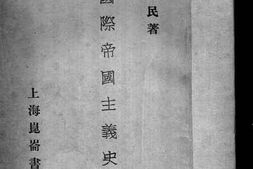 民著
國際帝國主義史
上海崑崙書